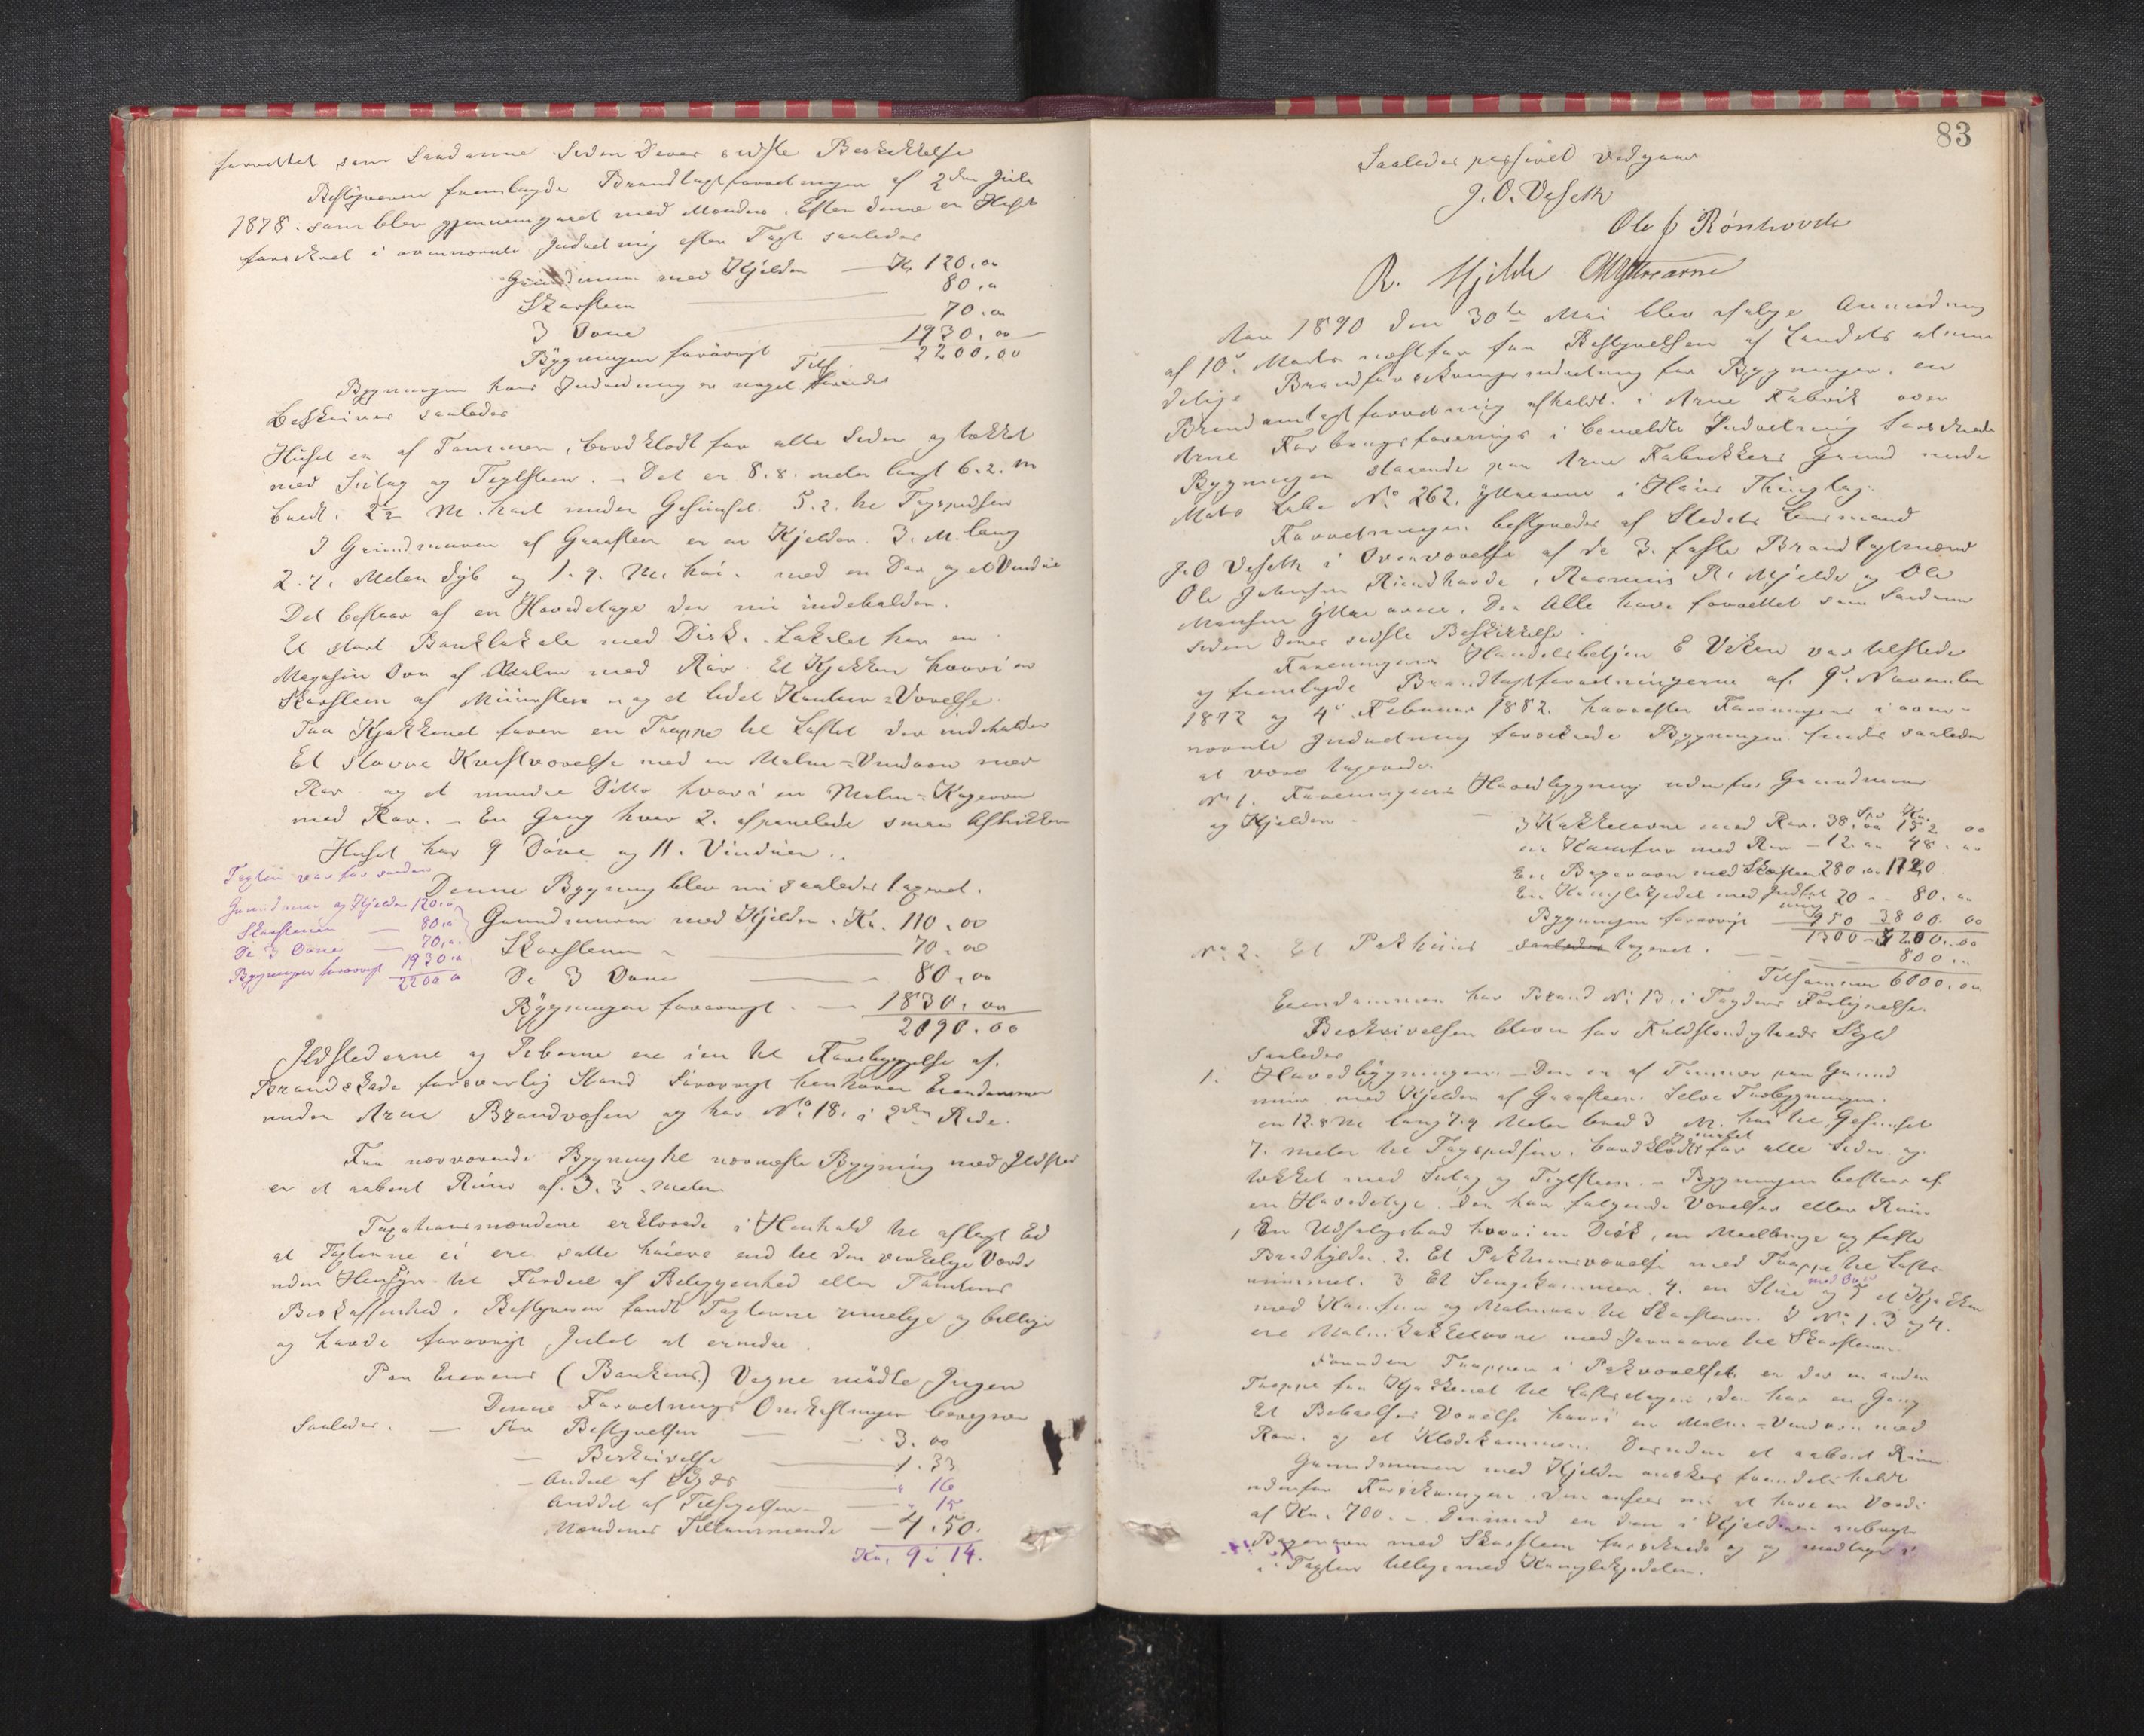 forrettet som Saadanne siden Deres sidste Beskikkelse
Bestyreren fremlagde Brandtaxtforretningen af 2den Juli
1878. som blev gjennemgaaet med Mændene. Efter denne er Huset
forsikret i ovennævnte Indretning efter Taxt saaledes
Grundmuren med Kjelder — Kr 120.00
Skorsteen — 80.00
3 Ovne — 70.00
Bygningen forøvrigt — 1930.00
Tils. 2200.00
Bygningen hvis Indredning er noget forandret
beskrives saaledes
Huset er af Tømmer, bordklædt paa alle Sider og tækket
med Sutag og Teglsteen. – Det er 8.8. meter langt 6.2. M
bredt. 2½ M. høit under Gesimset. 5.2. til Tagspidsen
I Grundmuren af Graasteen er en Kjelder. 3. M. lang
2.4. Meter dyb og 1.9. M. høi. med en Dør og et Vindue
Det bestaar af en Hovedetage der nu indeholder.
Et stort Banklokale med Disk. Lokalet har en
Magasin Ovn af Malm med Rør. Et Kjøkken hvori er
Skorsteen af Muursteen og et lidet Kontor-Værelse.
Fra Kjøkkenet fører en Trappe til Loftet der indeholder
Et større Kvistværelse med en Malm-Vindovn med
Rør og et mindre Ditto hvori en Malm-Kogeovn
med Rør. – En Gang hvor 2. afpanelede smaa Aflukker
Huset har 9 Døre og 11. Vinduer.
Taxten var før saadan
Denne Bygning blev nu saaledes taxeret.
Grundmur og Kjelder 120.00
Skorstenen — 80.00
De 3 Ovne — 70.00
Bygningen forøvrigt 1930.00
2200.00
Grundmuren med Kjelder. Kr. 110.00
Skorstenen — 70.00
De 3 Ovne — 80.00
Bygningen forøvrigt. — 1830.00
2090.00
Ildstederne og Piberne ere i en til Forebyggelse af.
Brandskade forsvarlig Stand forøvrigt henhører Eiendommen
under Arne Brandvæsen og har No 18. i 2den Rode.
Fra nærværende Bygning til nærmeste Bygning med Ildsted
er et aabent Rum af. 3.3. meter
Taxationsmændene erklærede i Henhold til aflagt Ed
at Taxterne ei ere satte høiere end til den virkelige Værdi
uden Hensyn til Fordeel af Beliggenhed eller Tomtens
Beskaffenhed. Bestyreren fandt Taxterne rimelige og billige
og havde forøvrigt Intet at erindre.
Paa Eierens (Bankens) Vegne mødte Ingen
Denne Forretnings Omkostninger beregnes
saaledes. — For Bestyrelsen — 3.00
— Beskrivelse — 1.33
— Andeel af Skyds — 16
Andeel af Tilsigelsen — 15
Mændenes Tilkommende — 4.50.
Kr. 9.14.
83
Saaledes passeret vedgaaes
J. O. Veseth
Ole J Rønhovde
R. Mjelde OMYttrearne
Aar 1890 den 30te Mai blev ifølge Anmodning
af 10de Marts næstfør fra Bestyrelsen af Landets almin-
delige Brandforsikringsindretning for Bygninger, en
Brandomtaxtforretning afholdt i Arne Fabrik over
Arne Forbrugsforenings i bemeldte Indretning forsikrede
Bygninger staaende paa Arne Fabrikkers Grund under
Matr Løbe No 262. Yttrearne i Haus Thinglag.
Forretningen bestyredes af Stedets Lensmand
J.O Veseth i Overværelse af de 3. faste Brandtaxtmænd
Ole Johnsen Rundhovde, Rasmus R. Mjelde og Ole
Monsen Yttrearne. Der Alle have forrettet som Saadanne
siden deres sidste Beskikkelse.
Foreningens Handelsbetjen E Viken var tilstede
og fremlagde Brandtaxtforretningerne af 9de November
1872 og 4de Februar 1882. hvorefter Foreningens i oven-
nævnte Indretning forsikrede Bygninger fandtes saaledes
at være taxerede.
No 1. Foreningens Hovedbygning udenfor Grundmuur
og Kjelder — Spd Kr.
3 Kakkelovne med Rør. 38.00 152 00
en Komfur med Rør — 12.00 48.00
En Bagerovn med Skorsteen 280.00 1120
En Kringlekjedel med Indfatning 20 — 80.00
Bygningen forøvrigt — 950 3800 00
1300 — 5200.00
No 2. Et Pakhuus saaledes taxeret. — 800..
Tilsammen 6000.00
Eiendommen har Brand No 13. i Taxtens Fortegnelse.
Beskrivelsen blev for Fuldstændigheds Skyld
saaledes
1. Hovedbygningen. – Den er af Tømmer paa Grund
muur med Kjelder af Graasteen. Selve Træbygningen
er 12.8 M lang 7.9 Meter bred 3 M. høi til Gesimset
7. meter til Tagspidsen. bordklædt og malet paa alle Sider og
tækket med Sutag og Teglsteen. – Bygningen bestaar af
en Hovedetage. Den har følgende Værelser eller Rum
1 En Udsalgsbod hvori en Disk, en Meelbinge og faste
Brædhylder. 2. Et Pakhuusværelse med Trappe til Lofts-
rummet. 3 Et Sengekammer. 4. en Stue med Ovn og 5 et Kjøkken
med Komfur og Malmrør til Skorstenen. I No 1. 3 og 4.
ere Malm Kakkelovne med Jernrør til Skorstenen.
Foruden Trappen i Pakværelset er der en anden
Trappe fra Kjøkkenet til Loftsetagen, der har en Gang
Et Beboelses Værelse hvori en Malm-Vindovn med
Rør. og et Klædekammer. Desuden et aabent Rum.
Grundmuren med Kjelder ønskes fremdeles holdt
udenfor Forsikringen. Den ansees nu at have en Værdi
af Kr. 700. – Derimod er den i Kjelderen anbragte
Bagerovn med Skorsteen forsikrede og og medtages i
i Taxten tilligemed Kringlekjedelen.